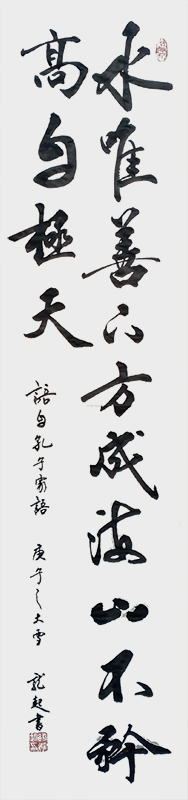 水唯善下方成海山不矜
高自極天
語自孔子家語 庚子之大雪 龍起書